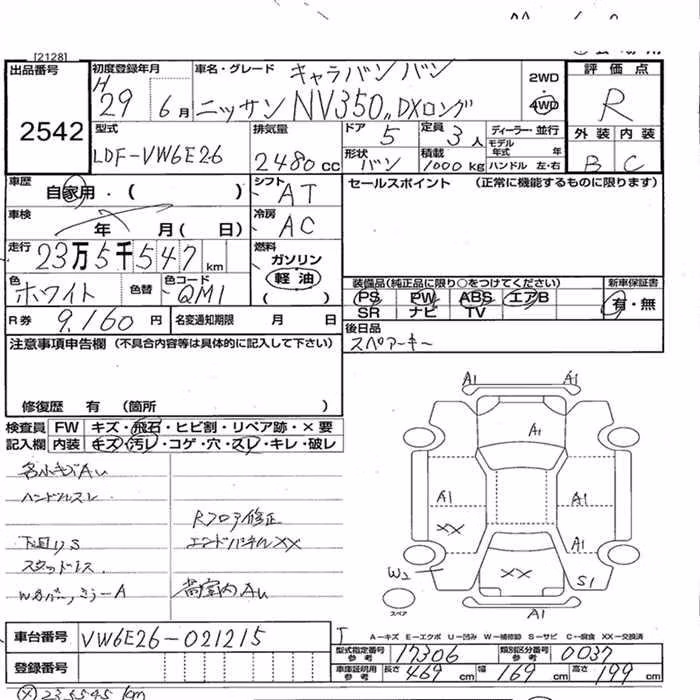 [2128]
出品番号
2542
初度登録年月
H
29 6月
車名・グレード
キャラバンバン
ニッサン NV350 DXロング
2WD
4WD
評価点
R
外装 内装
B C
型式
LDF-VW6E26
排気量
2480cc
ドア 5
形状 バン
定員 3人
積載 1000kg
ディーラー・並行
モデル年式 年
ハンドル 左・右
車歴
自家用・( )
車検
年 月( 日)
走行
23万5千547km
色
ホワイト
色替
色コード
QM1
シフト
AT
冷房
AC
燃料
ガソリン
軽油
( )
セールスポイント (正常に機能するものに限ります)
装備品(純正品に限り○をつけてください)
PS PW ABS エアB
SR ナビ TV
新車保証書
有・無
R券 9,160円
名変通知期限 月 日
後日品
スペアーキー
注意事項申告欄(不具合内容等は具体的に記入して下さい)
修復歴 有 (箇所 )
検査員 FW キズ・飛石・ヒビ割・リペア跡・×要
記入欄 内装 キズ・汚レ・コゲ・穴・スレ・キレ・破レ
各小キズAU
ハンドルスレ
Rフロア修正
下回りS
エンドパネルXX
スタッドレス
荷室内AU
A1 A1
A1
A1 A1
XX
A1
W2 XX S1
スペア
A1
A―キズ E―エクボ U―凹み W―補修跡 S―サビ C―腐食 XX―交換済
車台番号
VW6E26-021215
登録番号
型式指定番号参考 17306
類別区分番号参考 0037
車庫証明用参考 長さ 469cm 幅 169cm 高さ 199cm
235545km